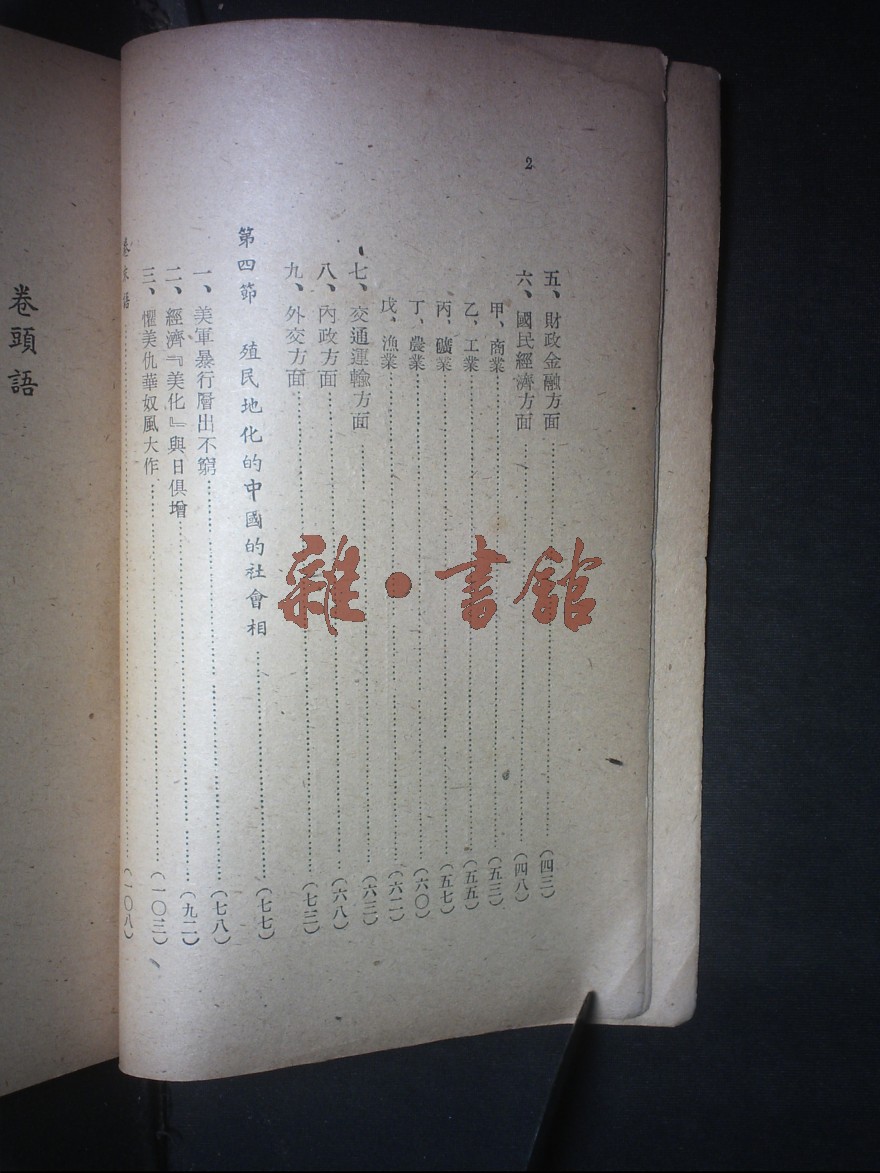 2
五、財政金融方面……(四三)
六、國民經濟方面……(四八)
甲、商業……(五三)
乙、工業……(五五)
丙、礦業……(五七)
丁、農業……(六〇)
戊、漁業……(六二)
七、交通運輸方面……(六三)
八、內政方面……(六八)
九、外交方面……(七三)
第四節 殖民地化的中國的社會相……(七七)
一、美軍暴行層出不窮……(七八)
二、經濟『美化』與日俱增……(九二)
三、懼美仇華奴風大作……(一〇三)
卷末語……(一〇八)
卷頭語
雜·書館